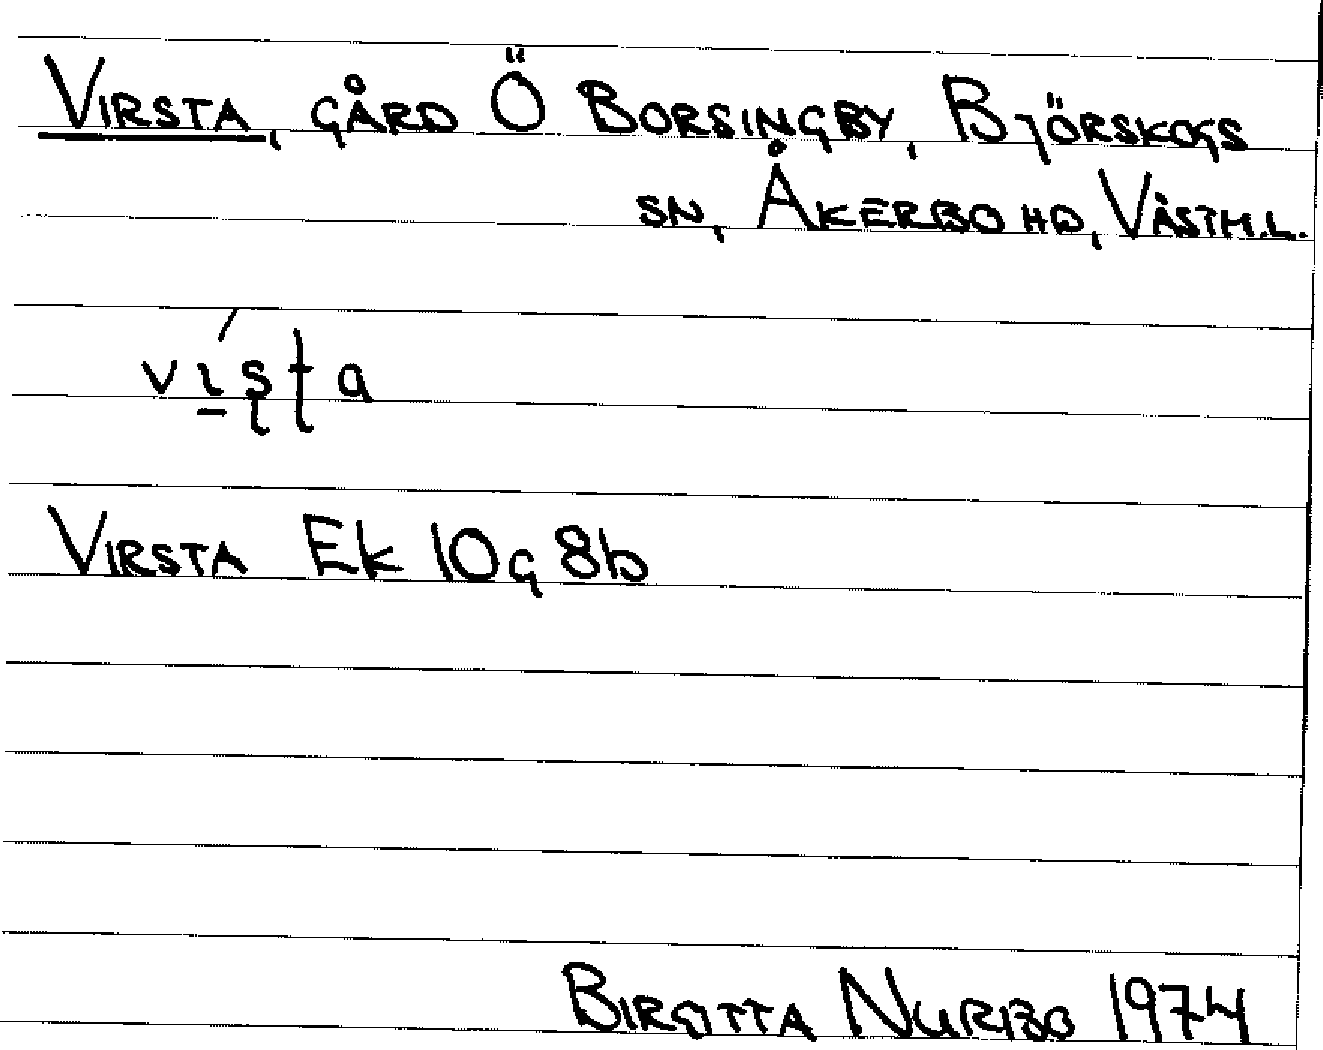 Virsta, gård Ö Borsingby, Björskogs
sn, Åkerbo hd, Västm.l.
vı̱́ʂʈa
Virsta Ek 10g 8b
Birgitta Nurbo 1974